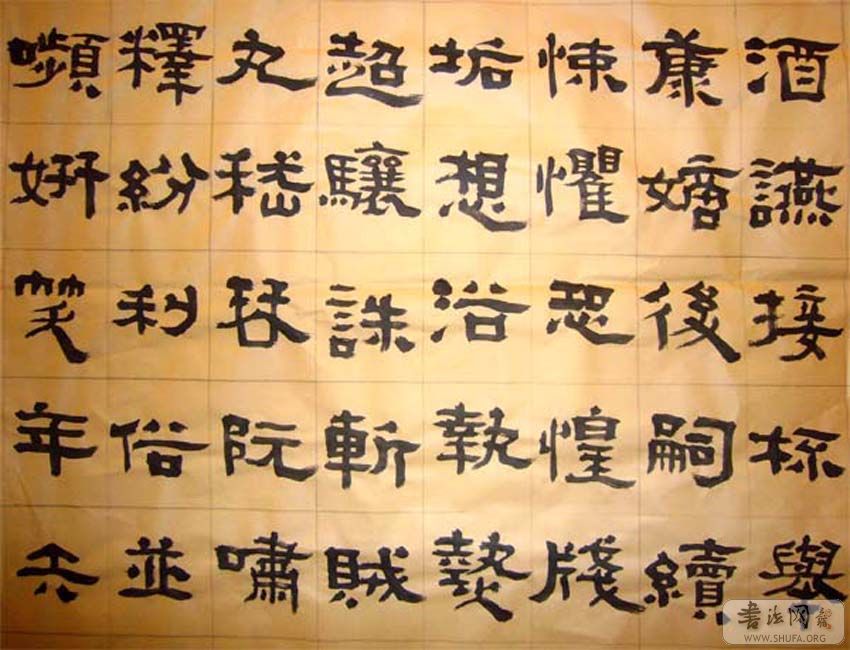 酒讌接杯舉
康嫡後嗣續
悚懼恐惶牋
垢想浴執熱
超驤誅斬賊
丸嵇琴阮嘯
釋紛利俗並
嚬妍笑年矢
書法网
WWW.SHUFA.ORG